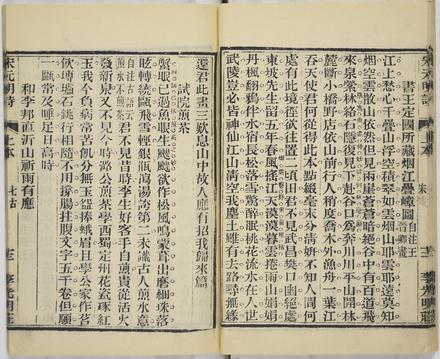 書王定國所藏煙江疊嶂圖 自注王晉卿畫 宋
江上愁心千疊山浮空積翠如雲煙山耶雲耶遠莫知
煙空雲散山依然但見兩崖蒼蒼暗絕谷中有百道飛
來泉縈林絡石隱復見下赴谷口為奔川川平山開林
麓斷小橋野店依山前行人稍度喬木外漁舟一葉江
吞天使君何從得此本點綴毫末分清妍不知人間何
處有此境徑欲往買二頃田君不見武昌樊口幽絕處
東坡先生留五年春風搖江天漠漠暮雲捲雨山娟娟
丹楓翻鴉伴水宿長松落雪驚醉眠桃花流水在人世
武陵豈必皆神仙江山清空我塵土雖有去路尋無緣
還君此畫三歎息山中故人應有招我歸來篇
試院煎茶
蟹眼已過魚眼生颼颼欲作松風鳴蒙茸出磨細珠落
眩轉繞甌飛雪輕銀瓶瀉湯誇第二未識古人煎水意
自注古語云煎水不煎茶 君不見昔時李生好客手自煎貴從活火
發新泉又不見今時潞公煎茶學西蜀定州花瓷琢紅
玉我今貧病常苦飢分無玉盌捧蛾眉且學公家作茗
飲塼爐石銚行相隨不用撐腸拄腹文字五千卷但願
一甌常及睡足日高時
和李邦直沂山祈雨有應
宋元明詩 七古